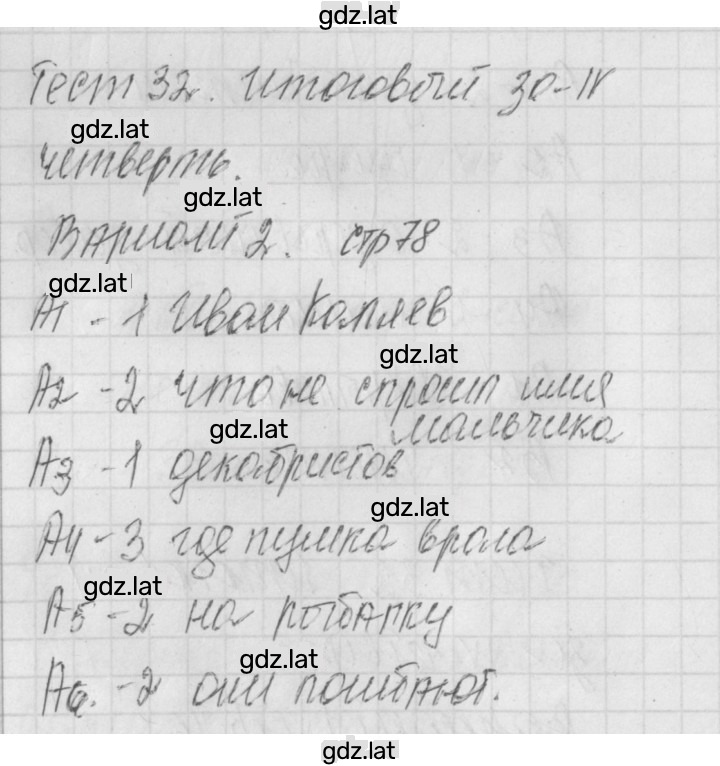 gdz.lat
Тест 32. Итоговый за IV
gdz.lat
четверть.
gdz.lat
Вариант 2. стр 78
gdz.lat
А1 - 1 Иван Капляев
gdz.lat
А2 - 2 что не спросил имя
gdz.lat мальчика
А3 - 1 декабристов
gdz.lat
А4 - 3 где пушка врала
gdz.lat
А5 - 2 на рыбалку
gdz.lat
А6. - 2 они погибают.
gdz.lat